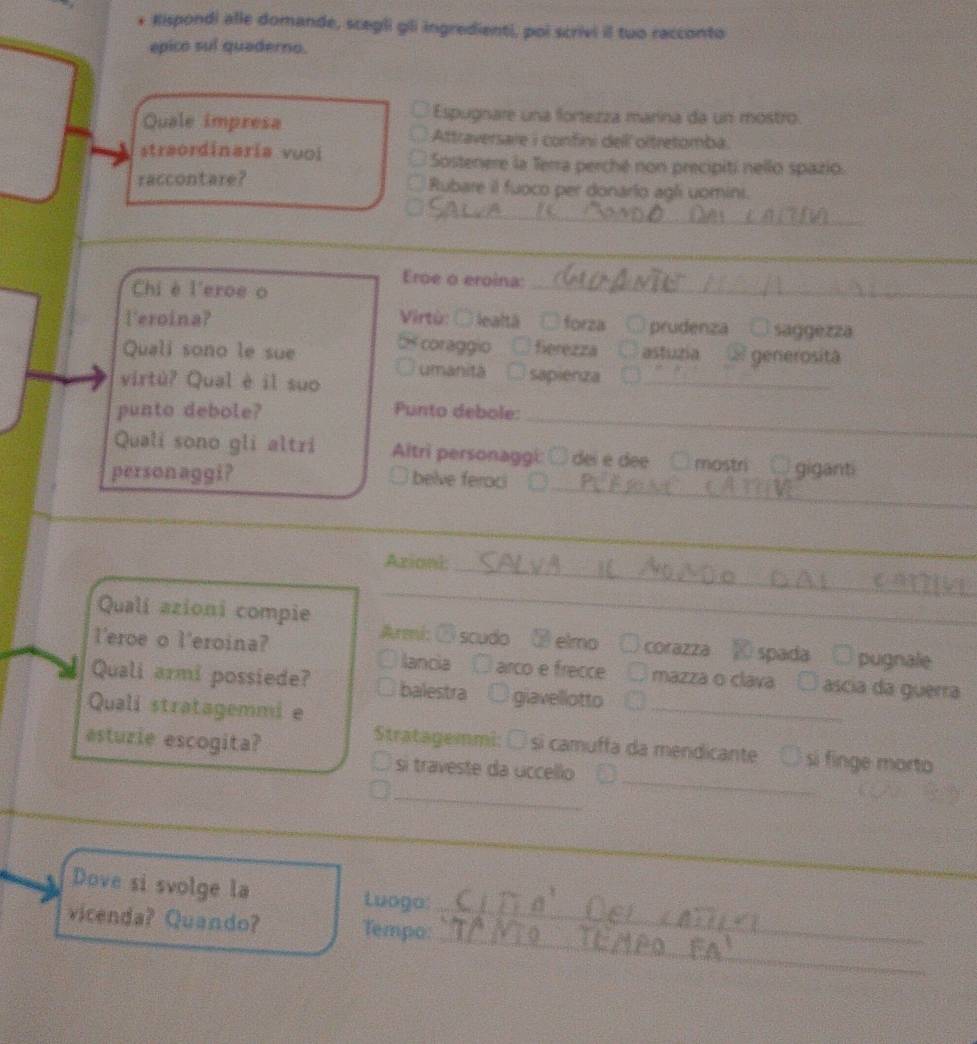 • Rispondi alle domande, scegli gli ingredienti, poi scrivi il tuo racconto
epico sul quaderno.
Quale impresa
straordinaria vuoi
raccontare?
Espugnare una fortezza marina da un mostro.
Attraversare i confini dell'oltretomba.
Sostenere la Terra perché non precipiti nello spazio.
Rubare il fuoco per donarlo agli uomini.
SALVA IL MONDO DAI CATTIVI
Chi è l'eroe o
l'eroina?
Quali sono le sue
virtù? Qual è il suo
punto debole?
Quali sono gli altri
personaggi?
Eroe o eroina:
Virtù: lealtà forza prudenza saggezza
coraggio fierezza astuzia generosità
umanità sapienza
Punto debole:
Altri personaggi: dei e dee mostri giganti
belve feroci PERSONE CATTIVE
Quali azioni compie
l'eroe o l'eroina?
Quali armi possiede?
Quali stratagemmi e
astuzie escogita?
Azioni: SALVA IL MONDO DAI CATTIVI
Armi: scudo elmo corazza spada pugnale
lancia arco e frecce mazza o clava ascia da guerra
balestra giavellotto
Stratagemmi: si camuffa da mendicante si finge morto
si traveste da uccello
Dove si svolge la
vicenda? Quando?
Luogo: CITTA' DEI CATTIVI
Tempo: TANTO TEMPO FA'